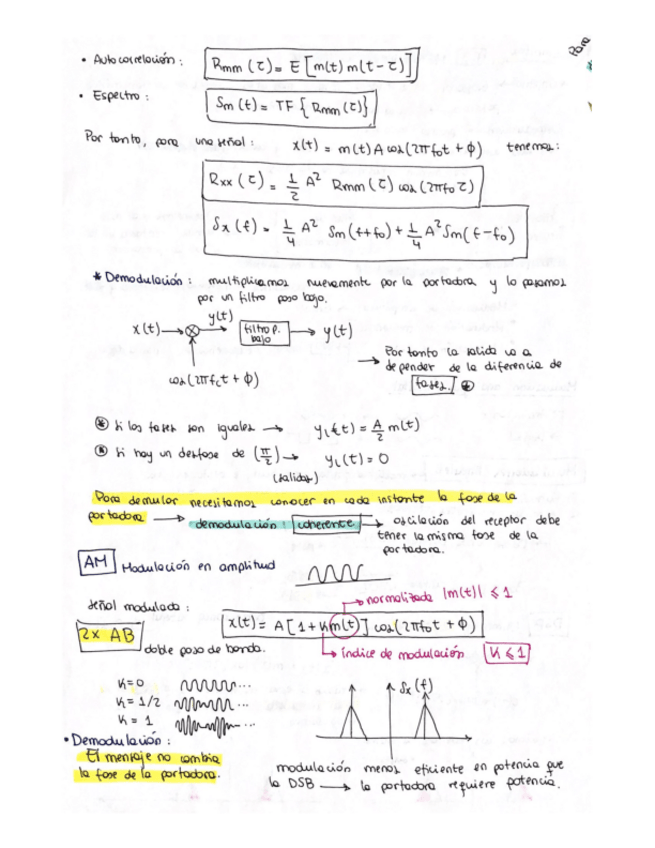 Para
• Autocorrelación: Rmm (τ) = E [m(t) m(t - τ)]
• Espectro: Sm (t) = TF { Rmm (τ)}
Por tanto, para una señal: x(t) = m(t) A cos (2πfot + ϕ) tenemos:
Rxx (τ) = 1/2 A² Rmm (τ) cos (2πfo τ)
Sx (f) = 1/4 A² Sm (f+fo) + 1/4 A² Sm (f-fo)
* Demodulación: multiplicamos nuevamente por la portadora y lo pasamos
por un filtro paso bajo.
x(t) → ⊗ y(t) → filtro p. bajo → y(t)
cos (2πfct + ϕ)
→ Por tanto la salida va a
depender de la diferencia de
fases.
Si las fases son iguales → yL(t) = A/2 m(t)
Si hay un desfase de (π/2) → yL(t) = 0
(salida)
Para demular necesitamos conocer en cada instante la fase de la
portadora → demodulación: coherente → oscilación del receptor debe
tener la misma fase de la
portadora.
AM Modulación en amplitud
→ normalizada |m(t)| ≤ 1
señal modulada: x(t) = A [1 + k m(t)] cos (2πfot + ϕ)
2x AB
doble paso de banda.
→ índice de modulación K ≤ 1
K=0 ...
K = 1/2 ...
K = 1 ...
Sx (f)
• Demodulación:
El mensaje no cambia
la fase de la portadora.
modulación menos eficiente en potencia que
la DSB → la portadora requiere potencia.